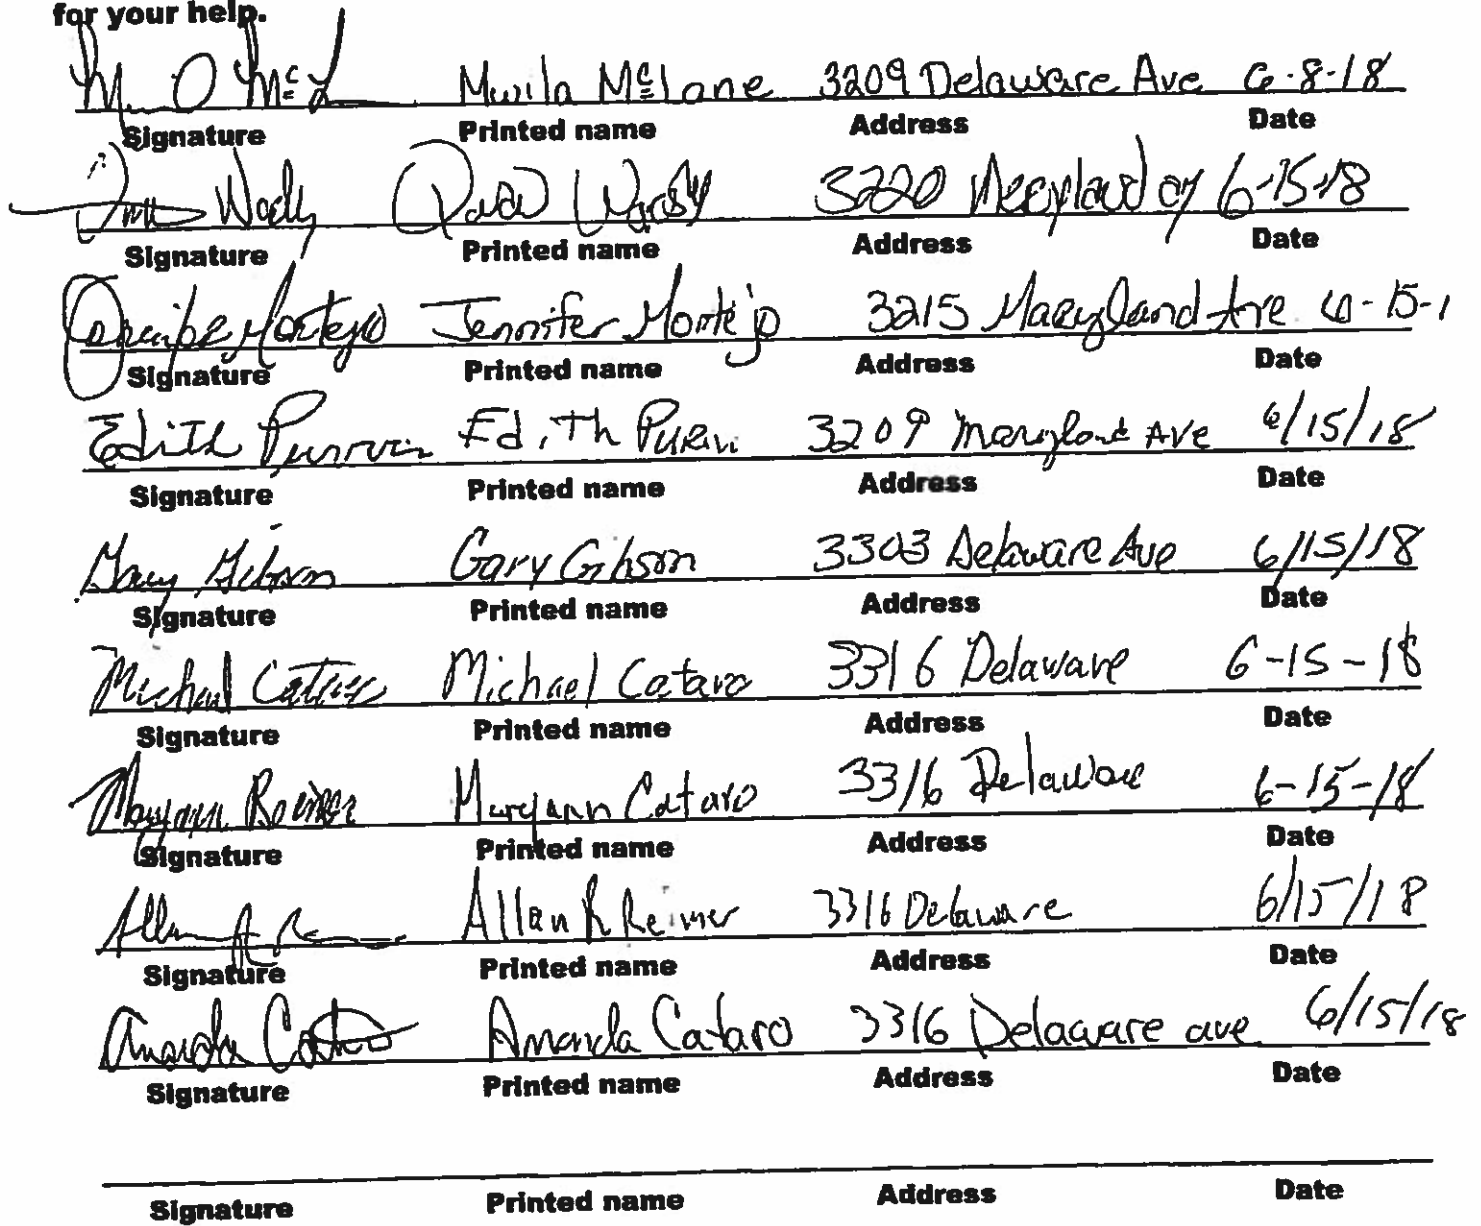 for your help.
M O McL Mwila McLane 3209 Delaware Ave 6-8-18
Signature Printed name Address Date
3220 6-15-18
Signature Printed name Address Date
Montejo Jennifer Montejo 3215 Maryland Ave 6-15-1
Signature Printed name Address Date
Edith Edith 3209 Maryland Ave 6/15/18
Signature Printed name Address Date
Gary Gibson Gary Gibson 3303 Delaware Ave 6/15/18
Signature Printed name Address Date
Michael Cataro Michael Cataro 3316 Delaware 6-15-18
Signature Printed name Address Date
Maryann Reimer Maryann Cataro 3316 Delaware 6-15-18
Signature Printed name Address Date
Allan R Reimer 3316 Delaware 6/15/18
Signature Printed name Address Date
Amanda Cataro Amanda Cataro 3316 Delaware ave 6/15/18
Signature Printed name Address Date
Signature Printed name Address Date